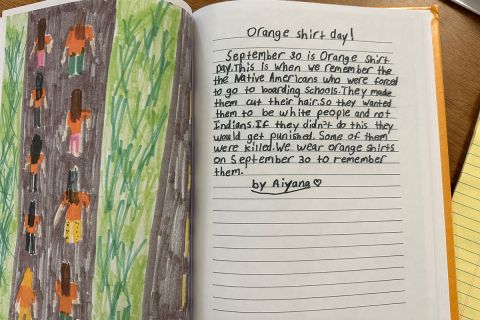 Orange shirt day!
September 30 is Orange shirt
Day. This is when we remember the
the Native Americans who were forced
to go to boarding schools. They made
them cut their hair. So they wanted
them to be white people and not
Indians. If they didn't do this they
would get punished. Some of them
were killed. We wear orange shirts
on September 30 to remember
them.
by Aiyana♡